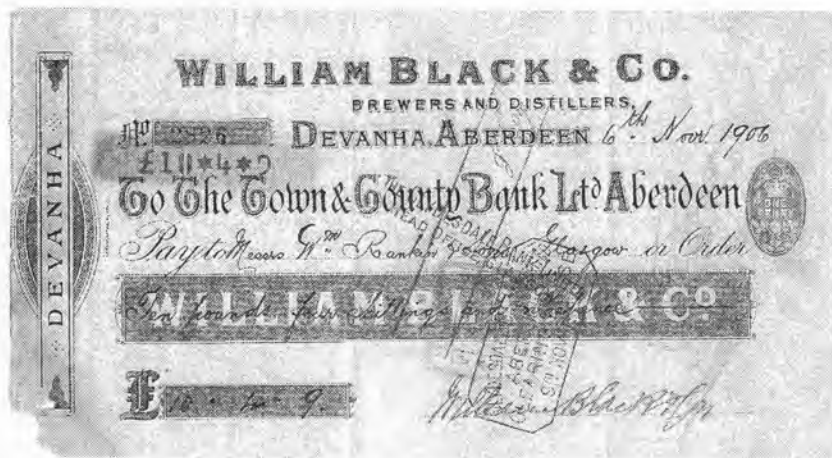 WILLIAM BLACK & CO.
BREWERS AND DISTILLERS,
Nº 2826 DEVANHA, ABERDEEN 6th Novr. 1906
£10*4*9
To The Town & County Bank Ltd Aberdeen
Pay to Messrs Wm Rankin & Sons Glasgow or Order
WILLIAM BLACK & Co
Ten pounds four shillings and nine pence
£ 10 " 4 " 9.
William Black & Co
DEVANHA
HEAD OFFICE
CLEARING